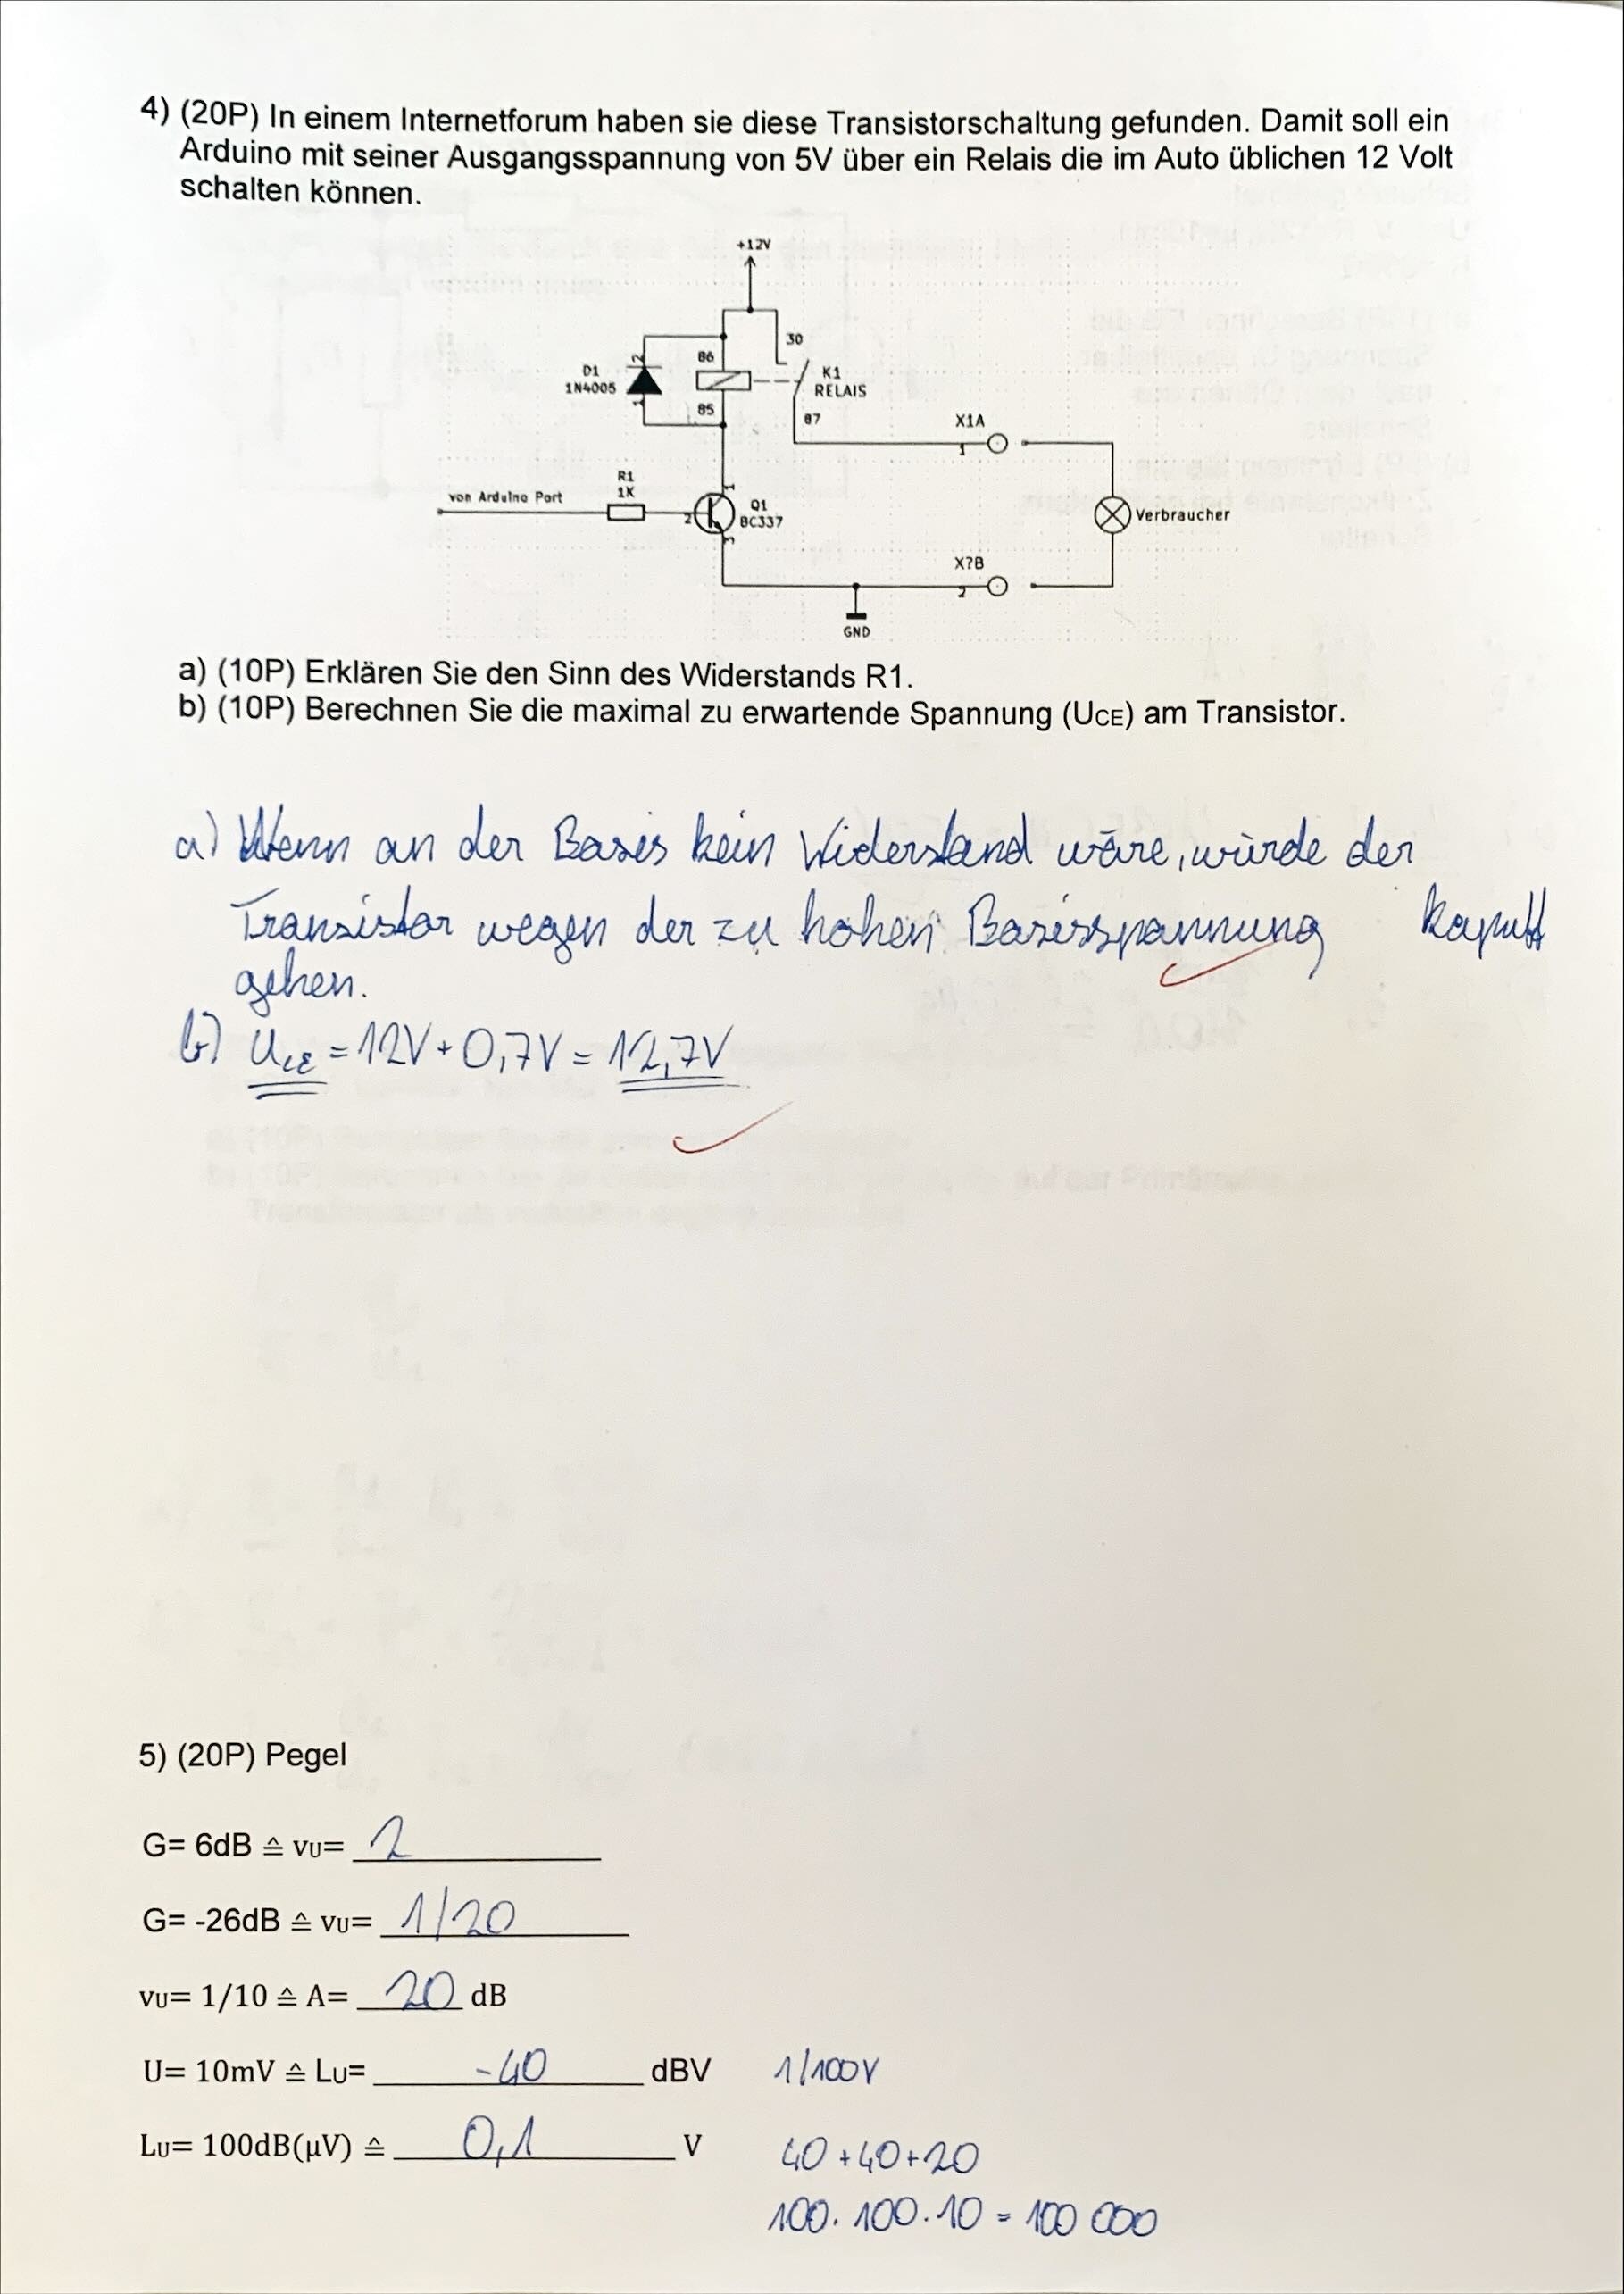 4) (20P) In einem Internetforum haben sie diese Transistorschaltung gefunden. Damit soll ein
Arduino mit seiner Ausgangsspannung von 5V über ein Relais die im Auto üblichen 12 Volt
schalten können.
+12V
30
86
D1
1N4005
2
1
K1
RELAIS
85
87
X1A
1
R1
1K
von Arduino Port
1
2
Q1
BC337
3
Verbraucher
X?B
2
GND
a) (10P) Erklären Sie den Sinn des Widerstands R1.
b) (10P) Berechnen Sie die maximal zu erwartende Spannung (UCE) am Transistor.
a) Wenn an der Basis kein Widerstand wäre, würde der
Transistor wegen der zu hohen Basisspannung kaputt
gehen.
b) UCE = 12V + 0,7V = 12,7V
5) (20P) Pegel
G= 6dB ≙ vU= 2
G= -26dB ≙ vU= 1/20
vU= 1/10 ≙ A= 20 dB
U= 10mV ≙ LU= -40 dBV 1/100V
LU= 100dB(µV) ≙ 0,1 V 40+40+20
100. 100. 10 = 100 000